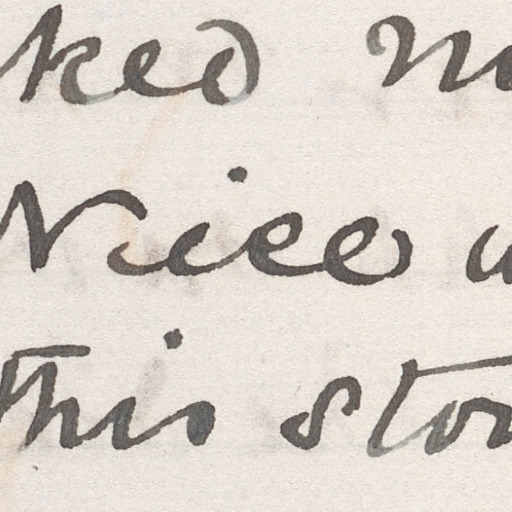 ked m
Nice w
this stor